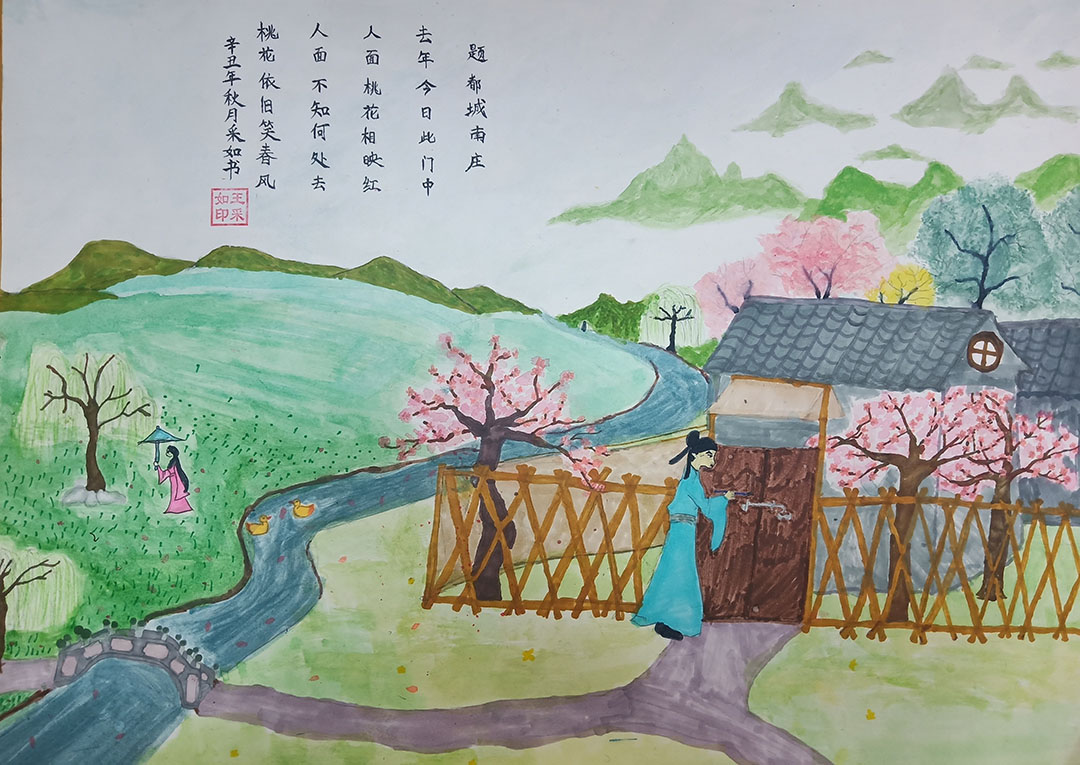 题都城南庄
去年今日此门中
人面桃花相映红
人面不知何处去
桃花依旧笑春风
辛丑年秋月采如书
王采
如印